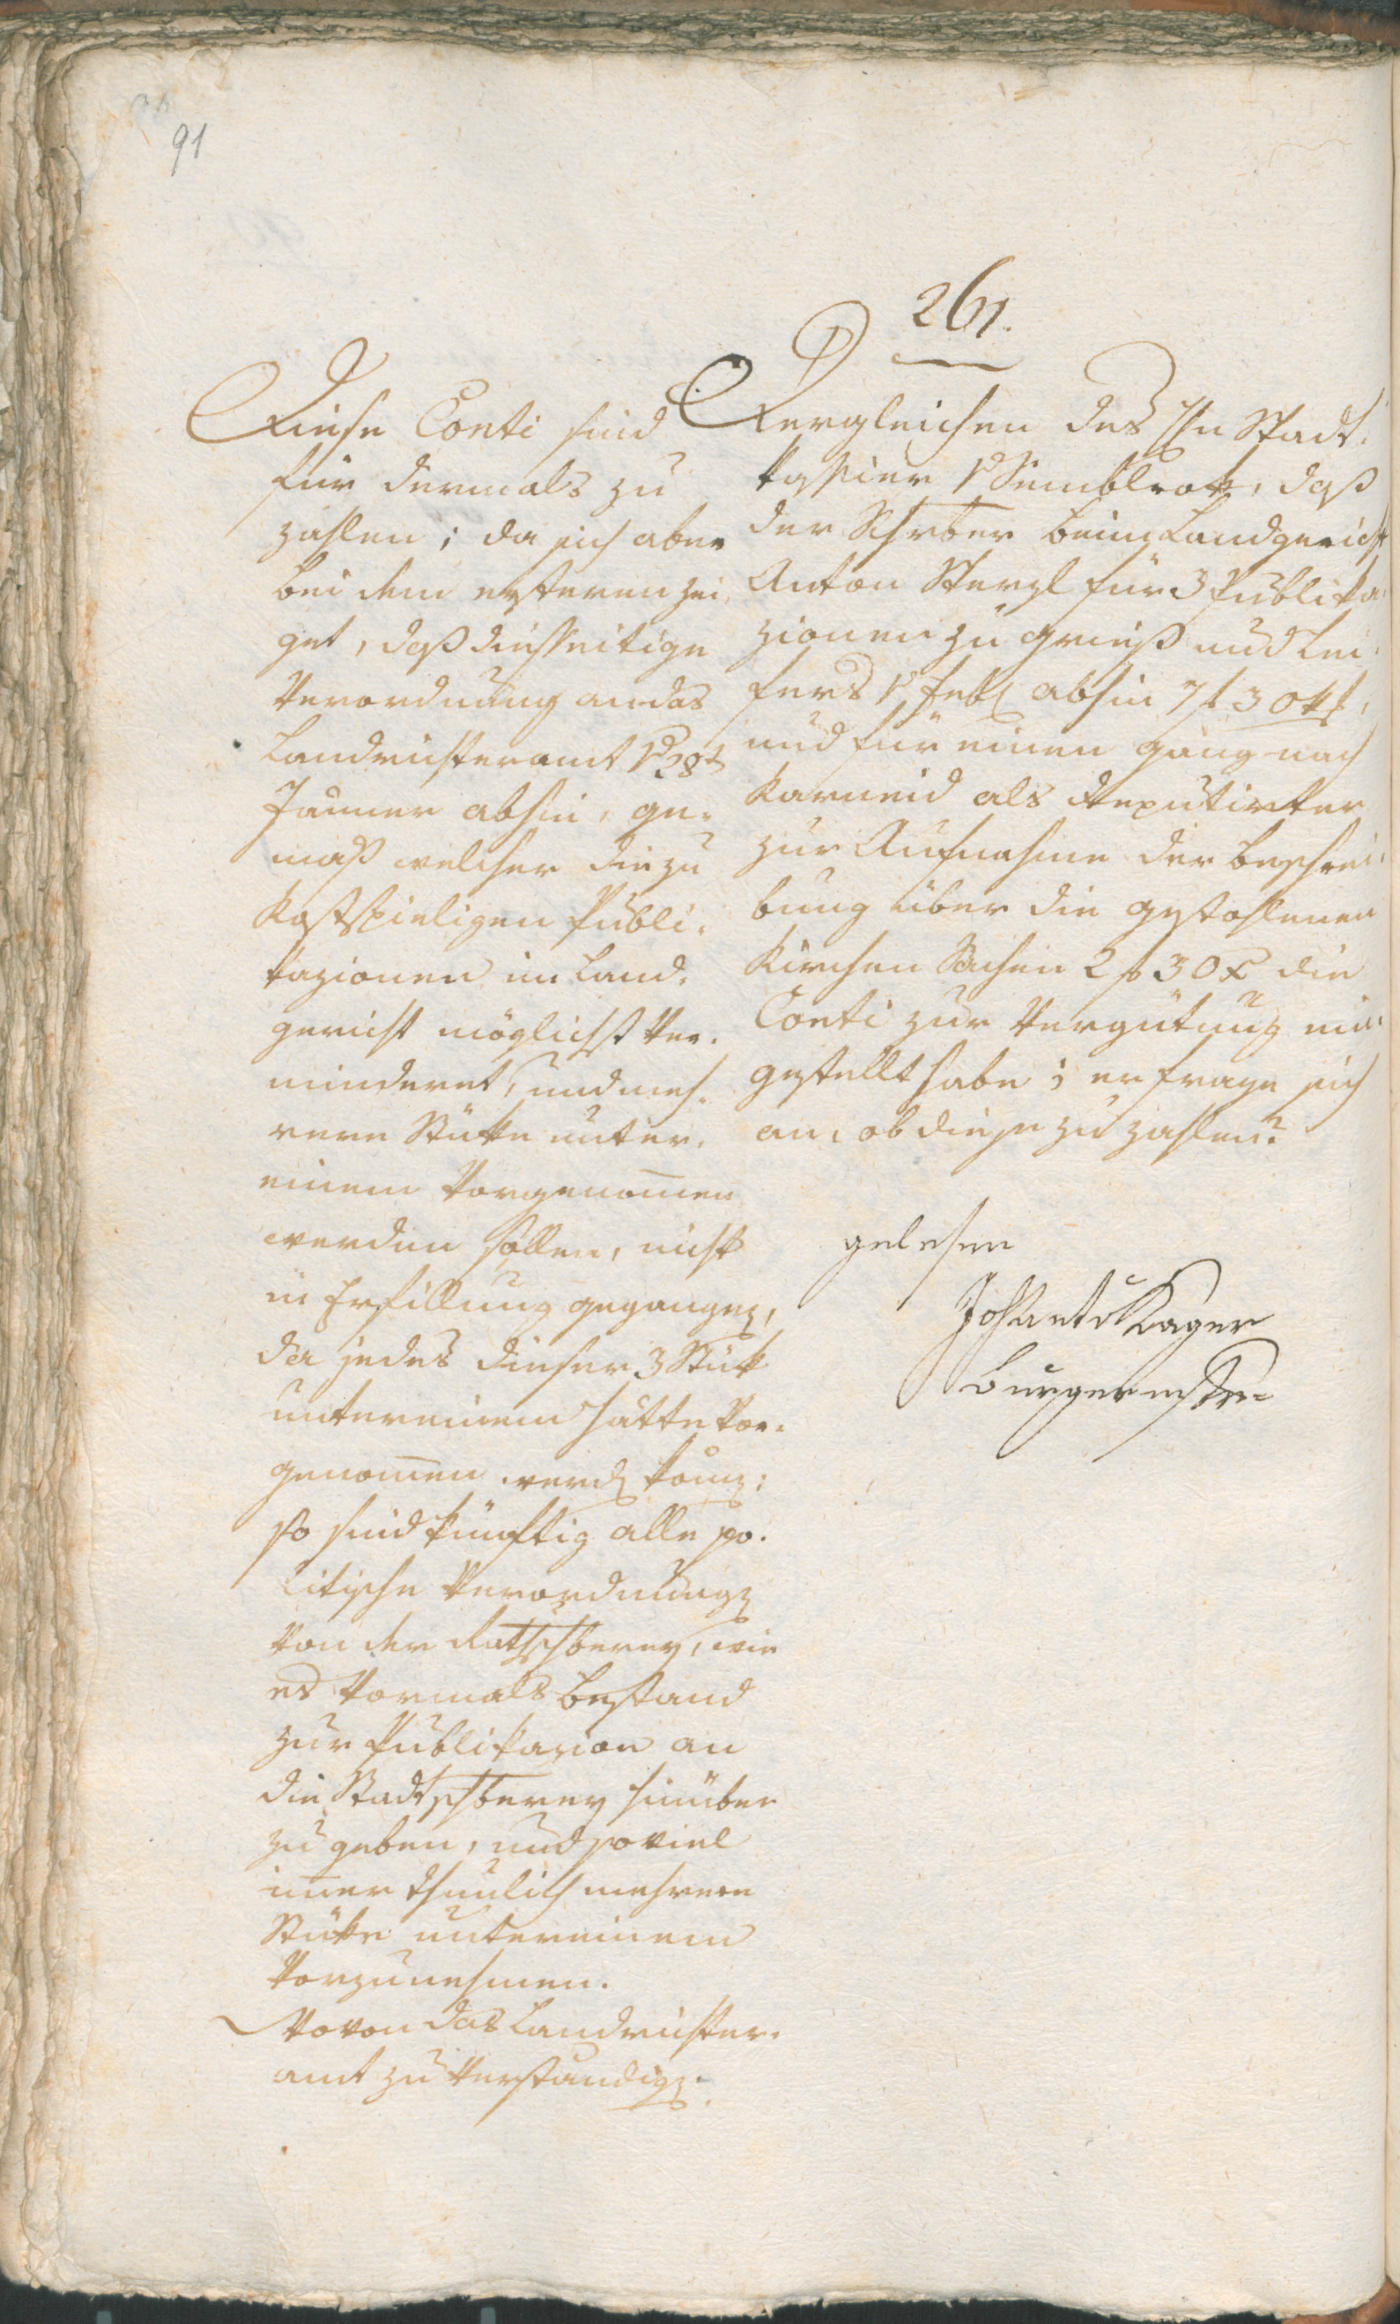 91
261.
Diese Conti sind
für dermals zu
zahlen; da sich aber
bei dem ersteren zei¬
get, daß diesseitige
Verordnung an das
Landrichteramt 28t
Jänner abhin, ge¬
mäß welcher die zu
kostspieligen Publi¬
kazionen im Land¬
gericht möglichst ver¬
minderet, und meh¬
rere Stüke unter
einem vorgenom̅en
werden sollen, nicht
in Erfüllung gegangen,
da jedes dieser 3 Stük
untereinem hätte vor¬
genom̅en werden können;
so sind künftig alle po¬
litische Verordnungen
von der Rathschberey, wie
es vormals bestand
zur Publikazion an
die Stadtschberey hinüber
zu geben, und soviel
im̅er thunlich mehrere
Stüke untereinem
vorzunehmen.
Wovon das Landrichter¬
amt zu verständigen.
Dergleichen des Hn Stadt¬
kassier daß
der Schrber beim Landgericht
Anton Sterzl für 3 Publika¬
zionen zu Gries und Lei¬
fers Feb abhin 7 f 30 kr,
und für einen Gang nach
Karneid als deputirter
zur Aufnahme der Beschrei¬
bung über die gestohlenen
Kirchen Sachen 2 f 30 x die
Conti zur Vergütung ein¬
gestellt habe; er frage sich
an, ob diese zu zahlen?
gelesen
Joh Kager
Burgermster